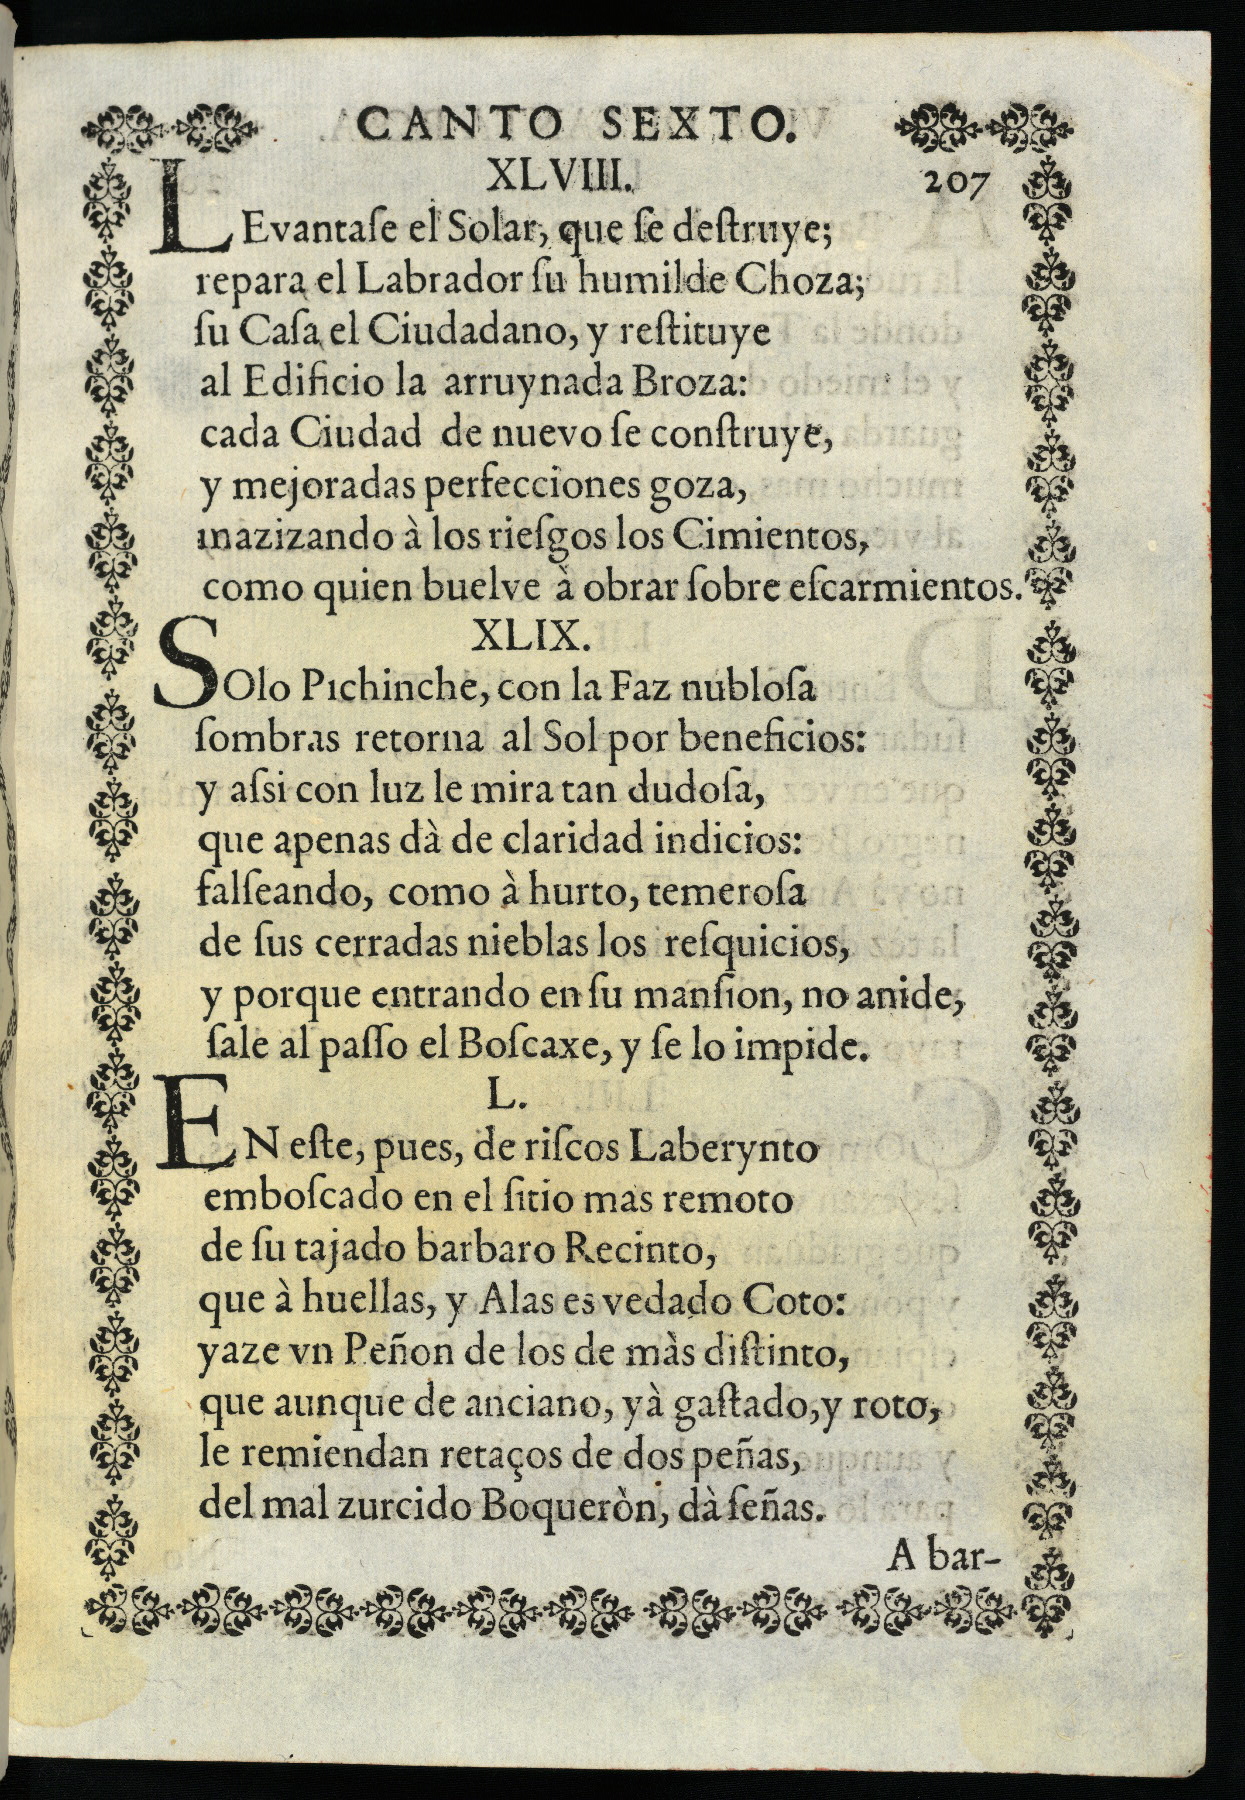 CANTO SEXTO.
XLVIII. 207
LEvantaſe el Solar, que ſe deſtruye;
repara el Labrador ſu humilde Choza;
ſu Caſa el Ciudadano, y reſtituye
al Edificio la arruynada Broza:
cada Ciudad de nuevo ſe conſtruye,
y mejoradas perfecciones goza,
mazizando à los rieſgos los Cimientos,
como quien buelve à obrar ſobre eſcarmientos.
XLIX.
SOlo Pichinche, con la Faz nubloſa
ſombras retorna al Sol por beneficios:
y aſsi con luz le mira tan dudoſa,
que apenas dà de claridad indicios:
falſeando, como à hurto, temeroſa
de ſus cerradas nieblas los reſquicios,
y porque entrando en ſu manſion, no anide,
ſale al paſſo el Boſcaxe, y ſe lo impide.
L.
EN eſte, pues, de riſcos Laberynto
emboſcado en el ſitio mas remoto
de ſu tajado barbaro Recinto,
que à huellas, y Alas es vedado Coto:
yaze vn Peñon de los de màs diſtinto,
que aunque de anciano, yà gaſtado, y roto,
le remiendan retaços de dos peñas,
del mal zurcido Boqueròn, dà ſeñas.
A bar-